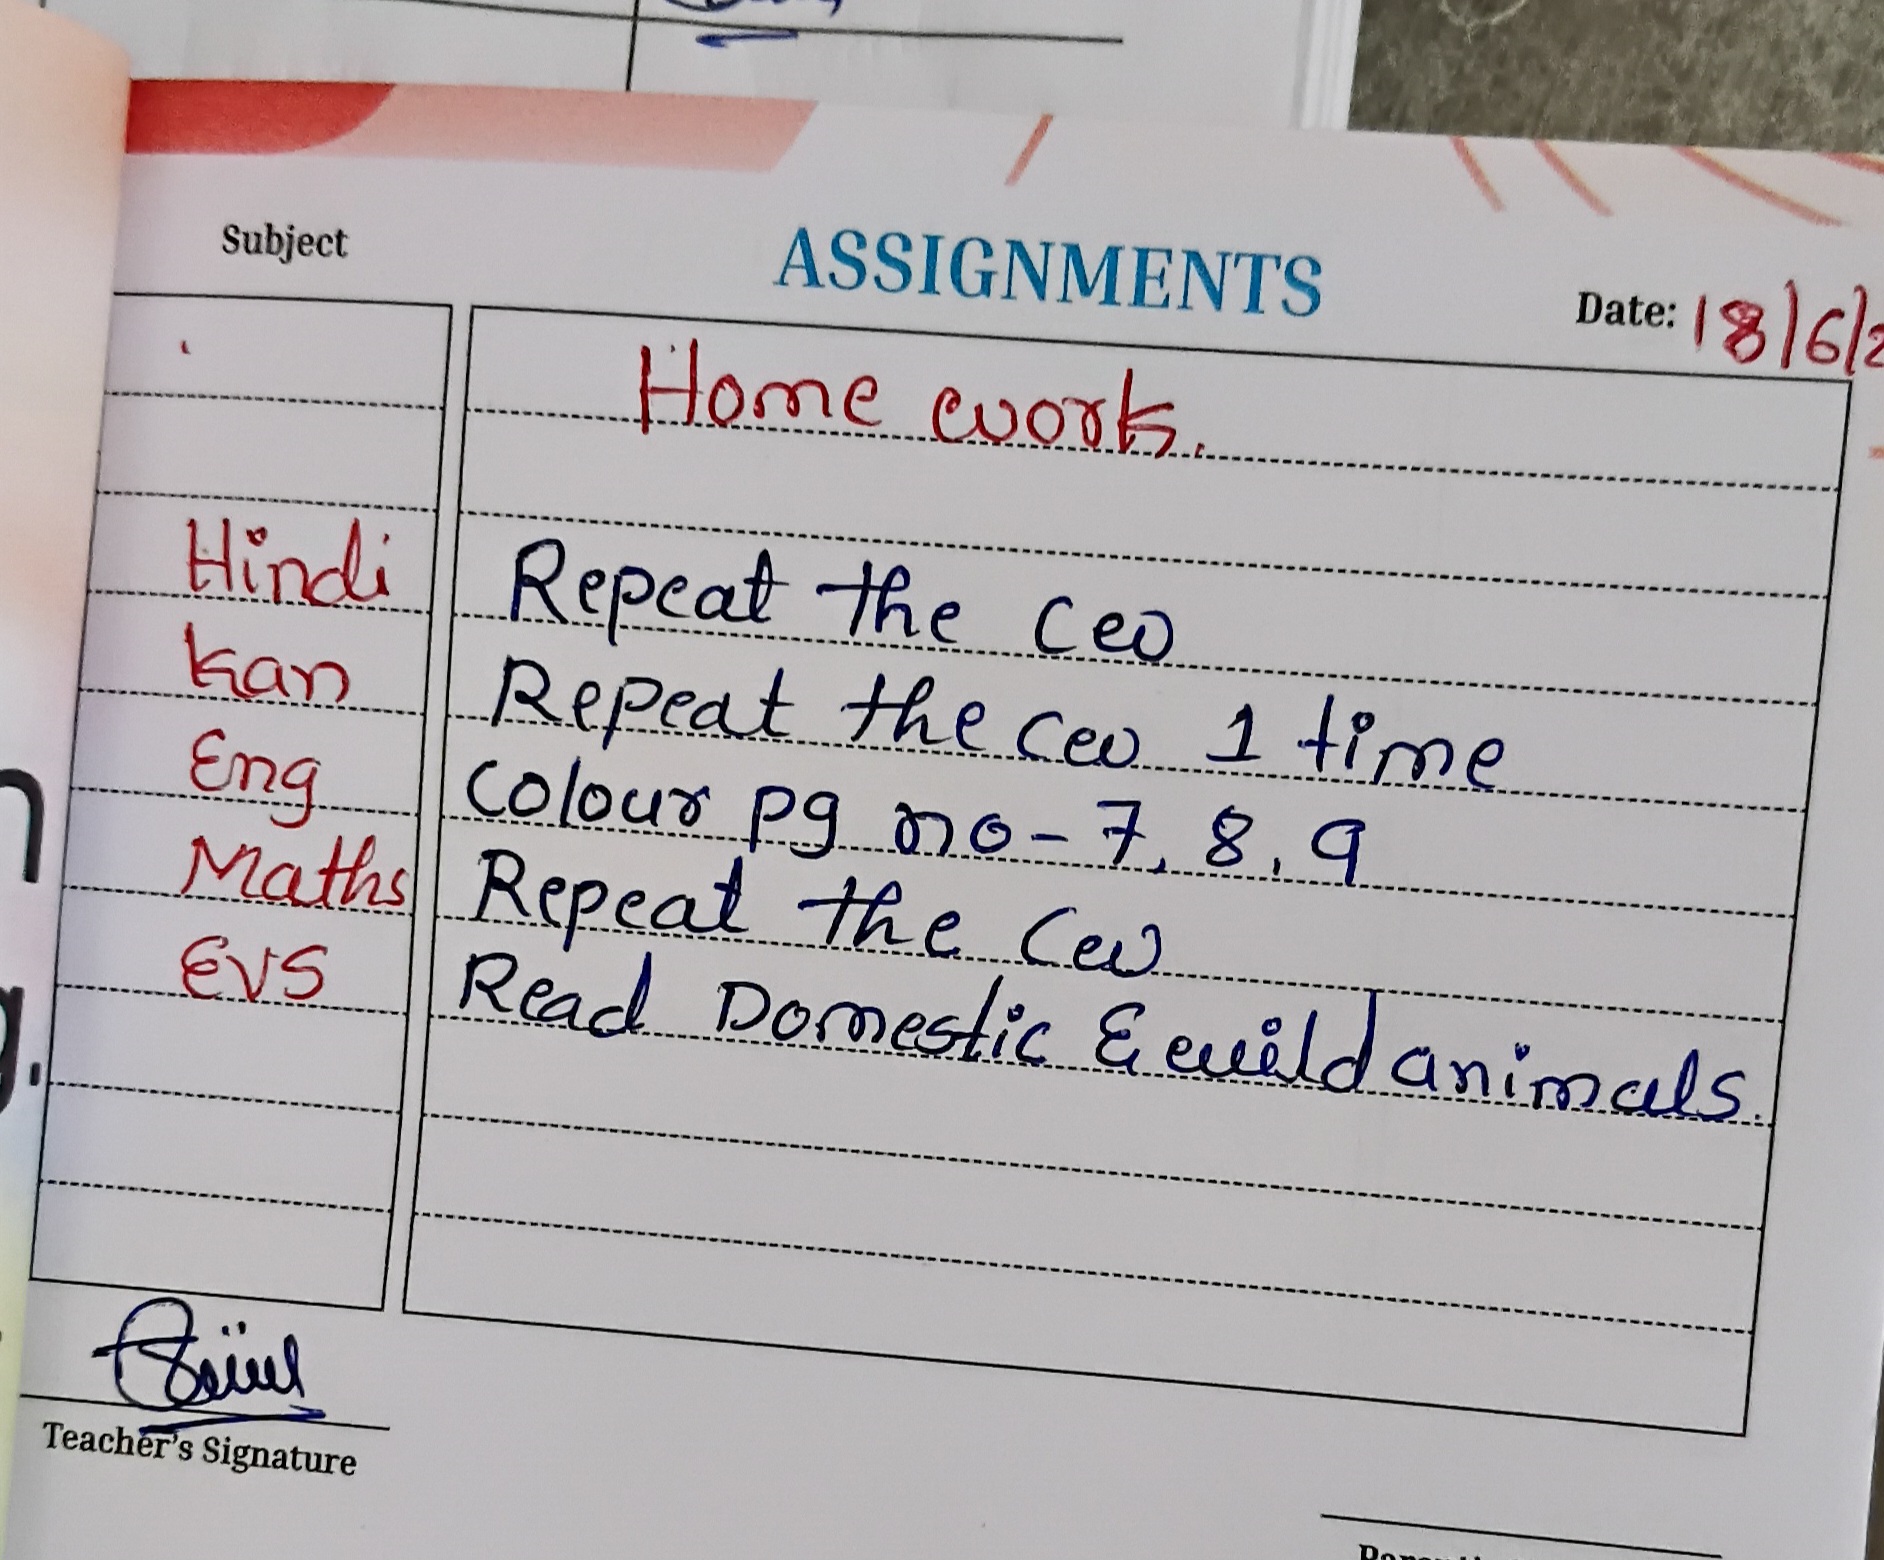 Subject
ASSIGNMENTS
Date: 18/6/2
Home work.
Hindi Repeat the cw
Kan Repeat the cw 1 time
Eng Colour pg no - 7, 8, 9
Maths Repeat the cw
EVS Read Domestic & wild animals.
Teacher's Signature